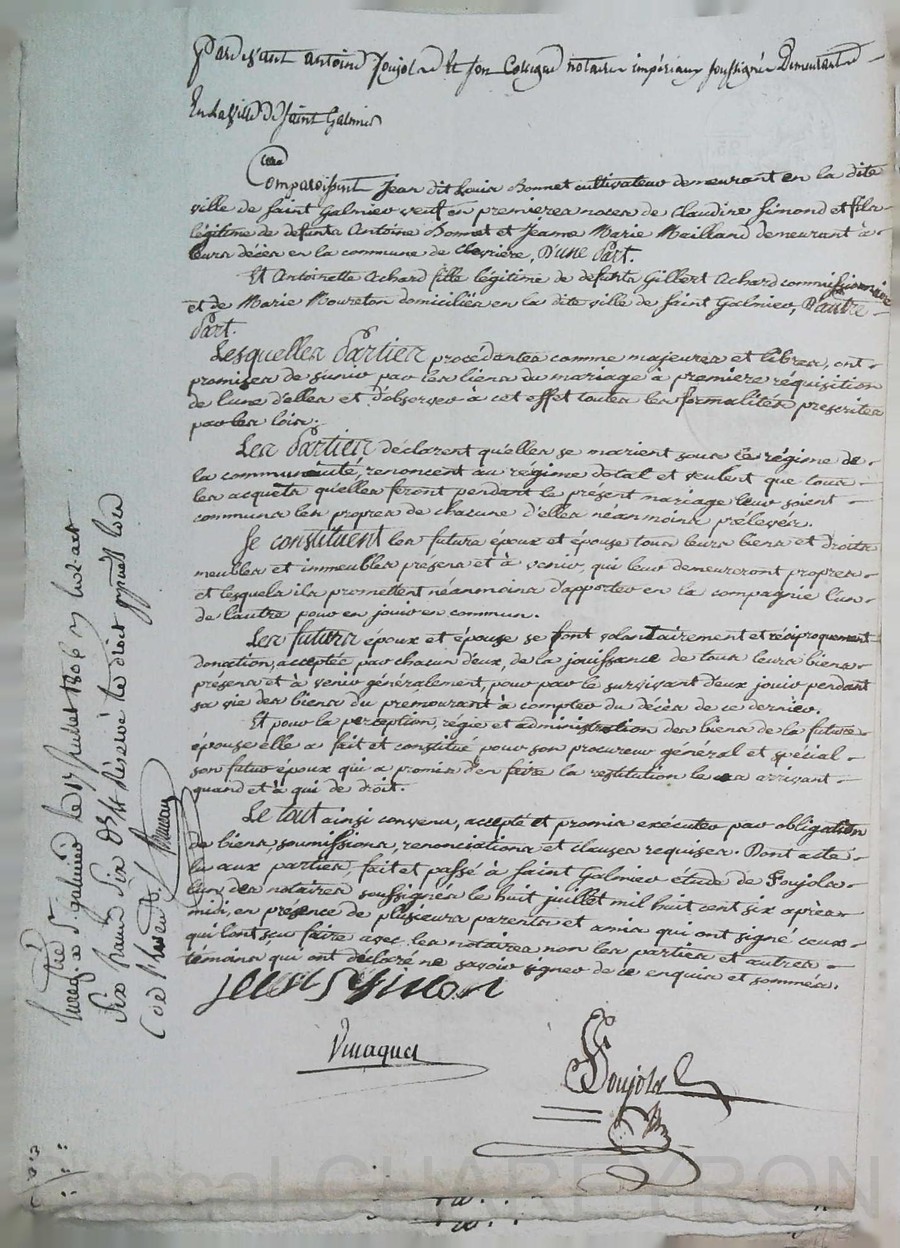 Pardevant antoine Poujolas et Son Collegue notaires impériaux soussignés Demeurants
En la ville De Saint Galmier
Comparoissent Jean dit Louis Bonnet cultivateur demeurant en la dite
ville de Saint Galmier veuf en premieres noces de Claudine Simond et fils
légitime de defunts Antoine Bonnet et Jeanne Marie Meilland demeurant à
leurs décès en la commune de Chevrière, D'une Part.
Et Antoinette Achard fille légitime de defunts Gilbert Achard commissionnaire
et de Marie Moureton domiciliés en la dite ville de Saint Galmier, D'autre
Part.
Lesquelles Parties procédantes comme majeures et libres, ont
promises de s'unir par les liens du mariage à premiere réquisition
de l'une d'elles et d'observer à cet effet toutes les formalités prescrites
par les loix.
Les Parties déclarent qu'elles se marient sous le régime de
la communauté, renoncent au régime dotal et veulent que tous
les acquets qu'elles feront pendant le présent mariage leur soient
communs les propres de chacune d'elles néanmoins prélevés.
Se constituent les futurs époux et épouse tous leurs biens et droits
meubles et immeubles présens et à venir, qui leur demeureront propres
et lesquels ils promettent néanmoins d'apporter en la compagnie l'un
de l'autre pour en jouir en commun.
Les futurs époux et épouse se font solantairement et réciproquement
donation, acceptée par chacun d'eux, de la jouissance de tous leurs biens
présens et à venir généralement, pour par le survivant d'eux jouir pendant
sa vie des biens du premourant à compter du décès de ce dernier.
Et pour la perception, régie et administration des biens de la future
épouse elle a fait et constitué pour son procureur général et spécial
son futur époux qui a promis d'en faire la restitution le cas arrivant
quand et à qui de droit.
Le tout ainsi convenu, accepté et promis exécuter par obligation
de biens, soumissions, renonciations et clauses requises. Dont acte
lu aux parties, fait et passé à Saint Galmier étude de Poujolas
l'un des notaires soussignés le huit juillet mil huit cent six après
midi, en présence de plusieurs parents et amis qui ont signé ceux
qui l'ont su faire avec les notaires non les parties et autres
témoins qui ont déclaré ne savoir signer de ce enquis et sommés.
Poujolas
juillet 1806
Pascal CHAREYRON